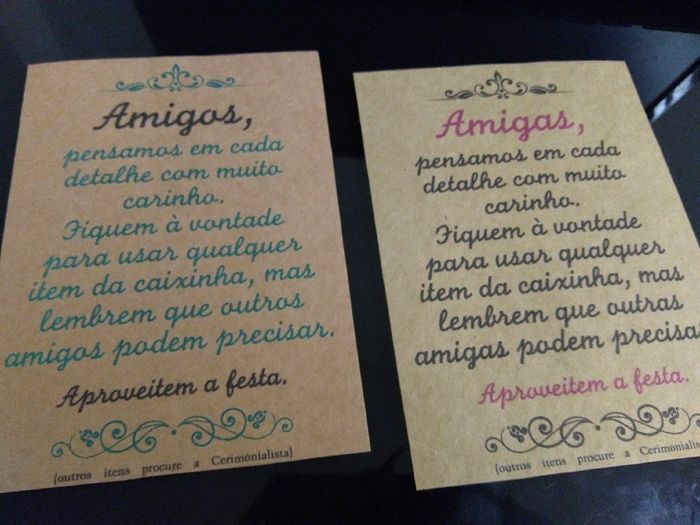 Amigos,
pensamos em cada
detalhe com muito
carinho.
Fiquem à vontade
para usar qualquer
item da caixinha, mas
lembrem que outros
amigos podem precisar.
Aproveitem a festa.
(outros itens procure a Cerimonialista)
Amigas,
pensamos em cada
detalhe com muito
carinho.
Fiquem à vontade
para usar qualquer
item da caixinha, mas
lembrem que outras
amigas podem precisa
Aproveitem a festa.
(outros itens procure a Cerimonialis